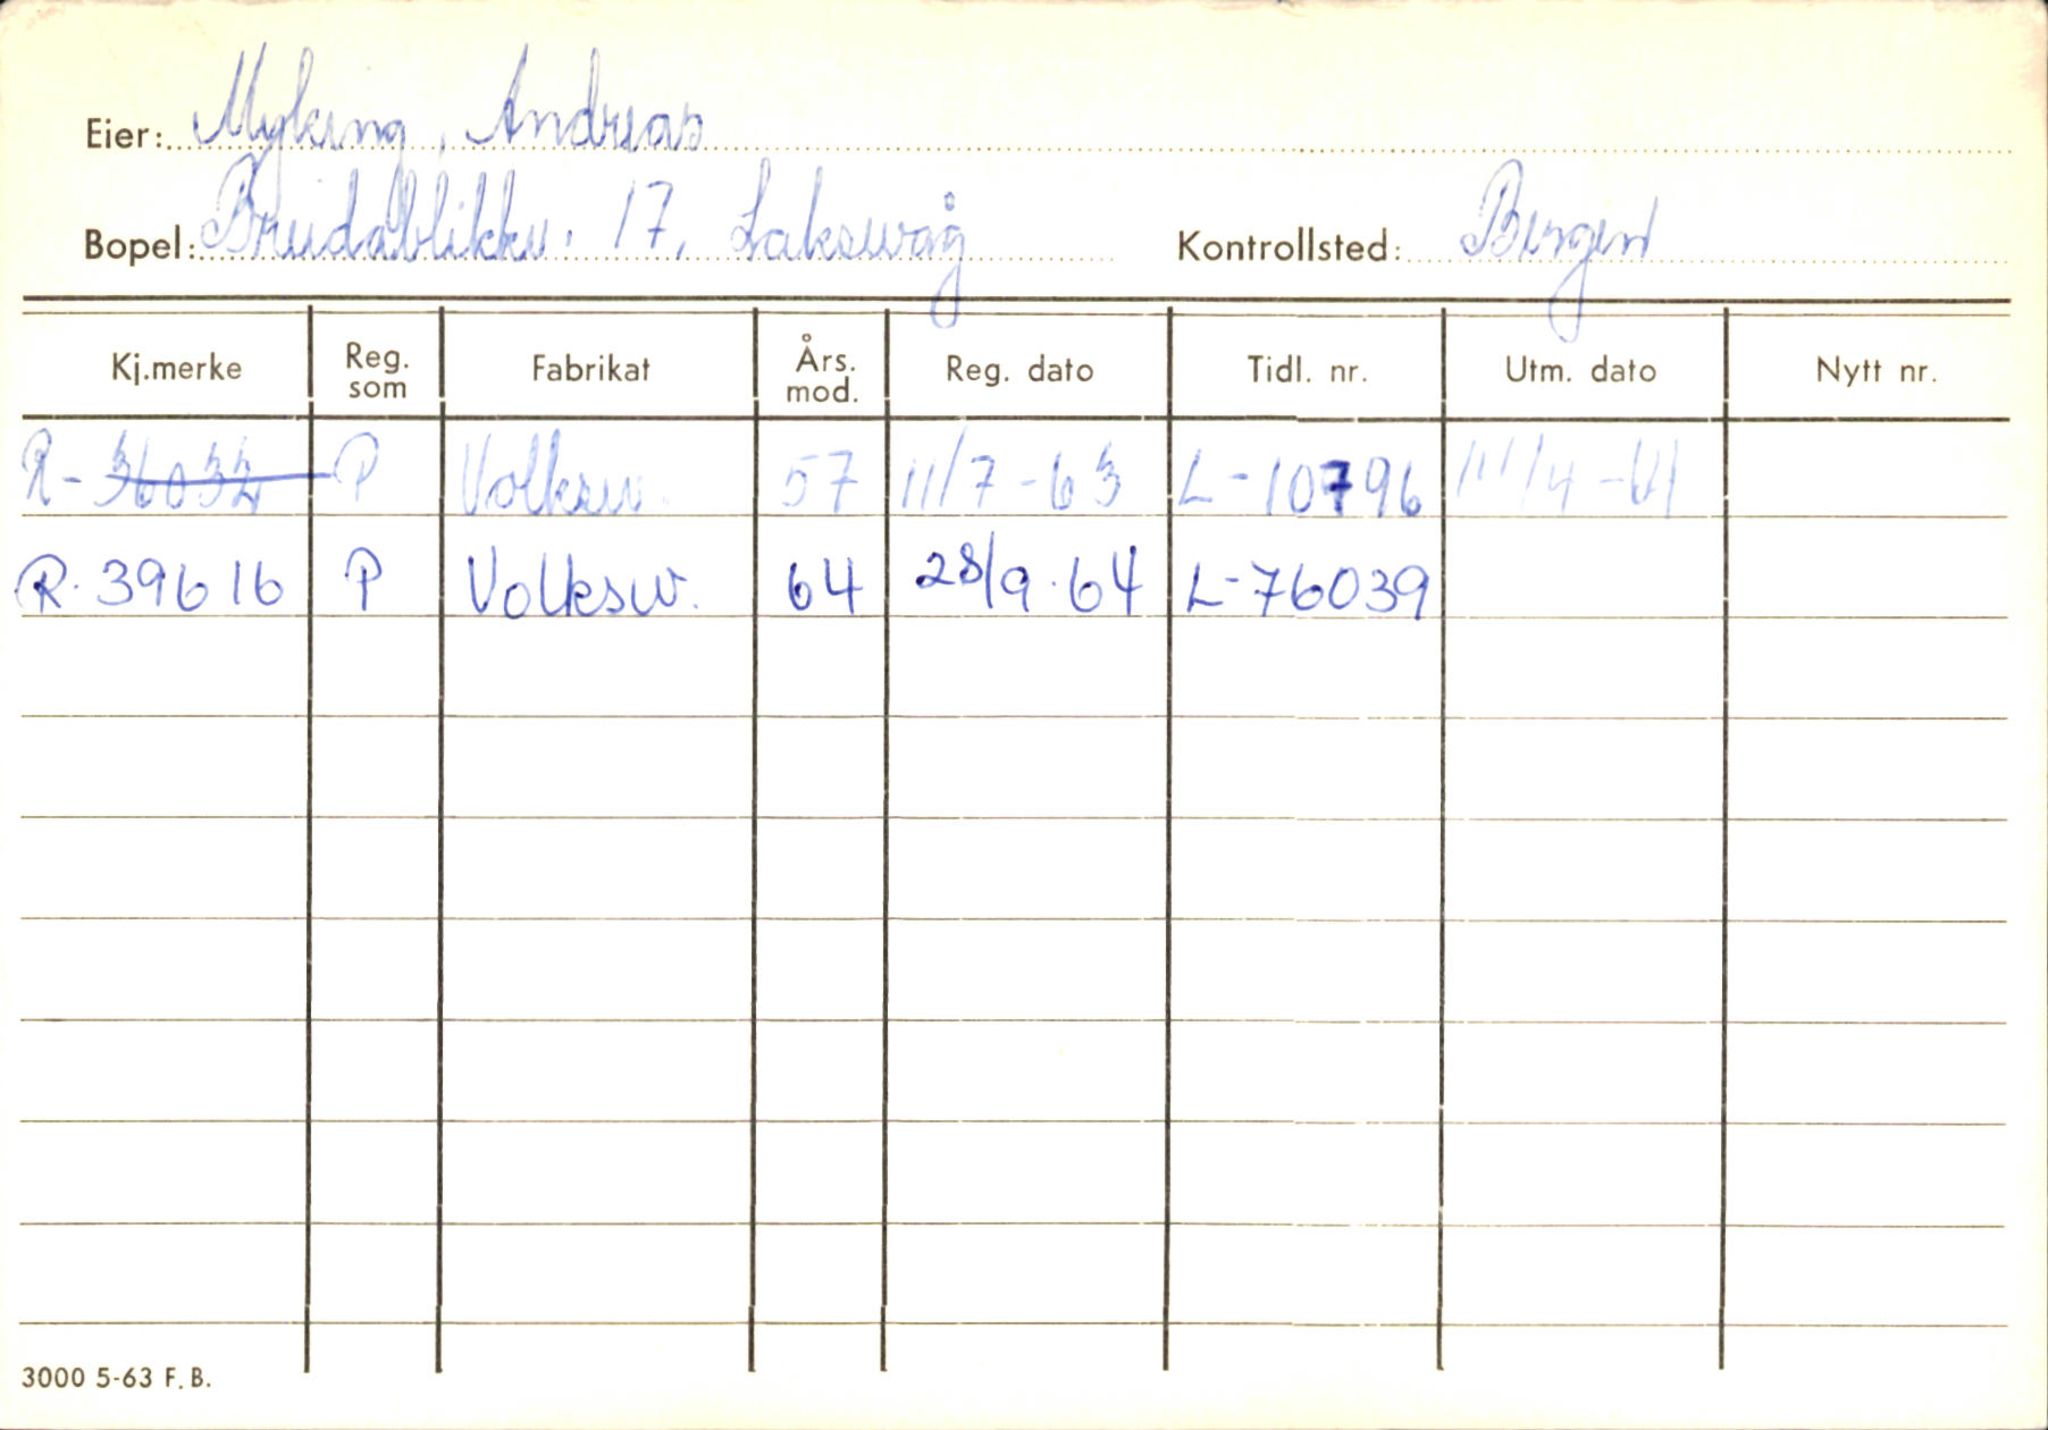 Eier: Myking, Andreas
Bopel: Breidablikkv. 17, Laksevåg Kontrollsted: Bergen
Kj.merke Reg. som Fabrikat Års. mod. Reg. dato Tidl. nr. Utm. dato Nytt nr.
R-36032 P Volksw. 57 11/7-63 L-10796
R-39616 P Volksw. 64 28/9-64 L-76039
3000 5-63 F.B.